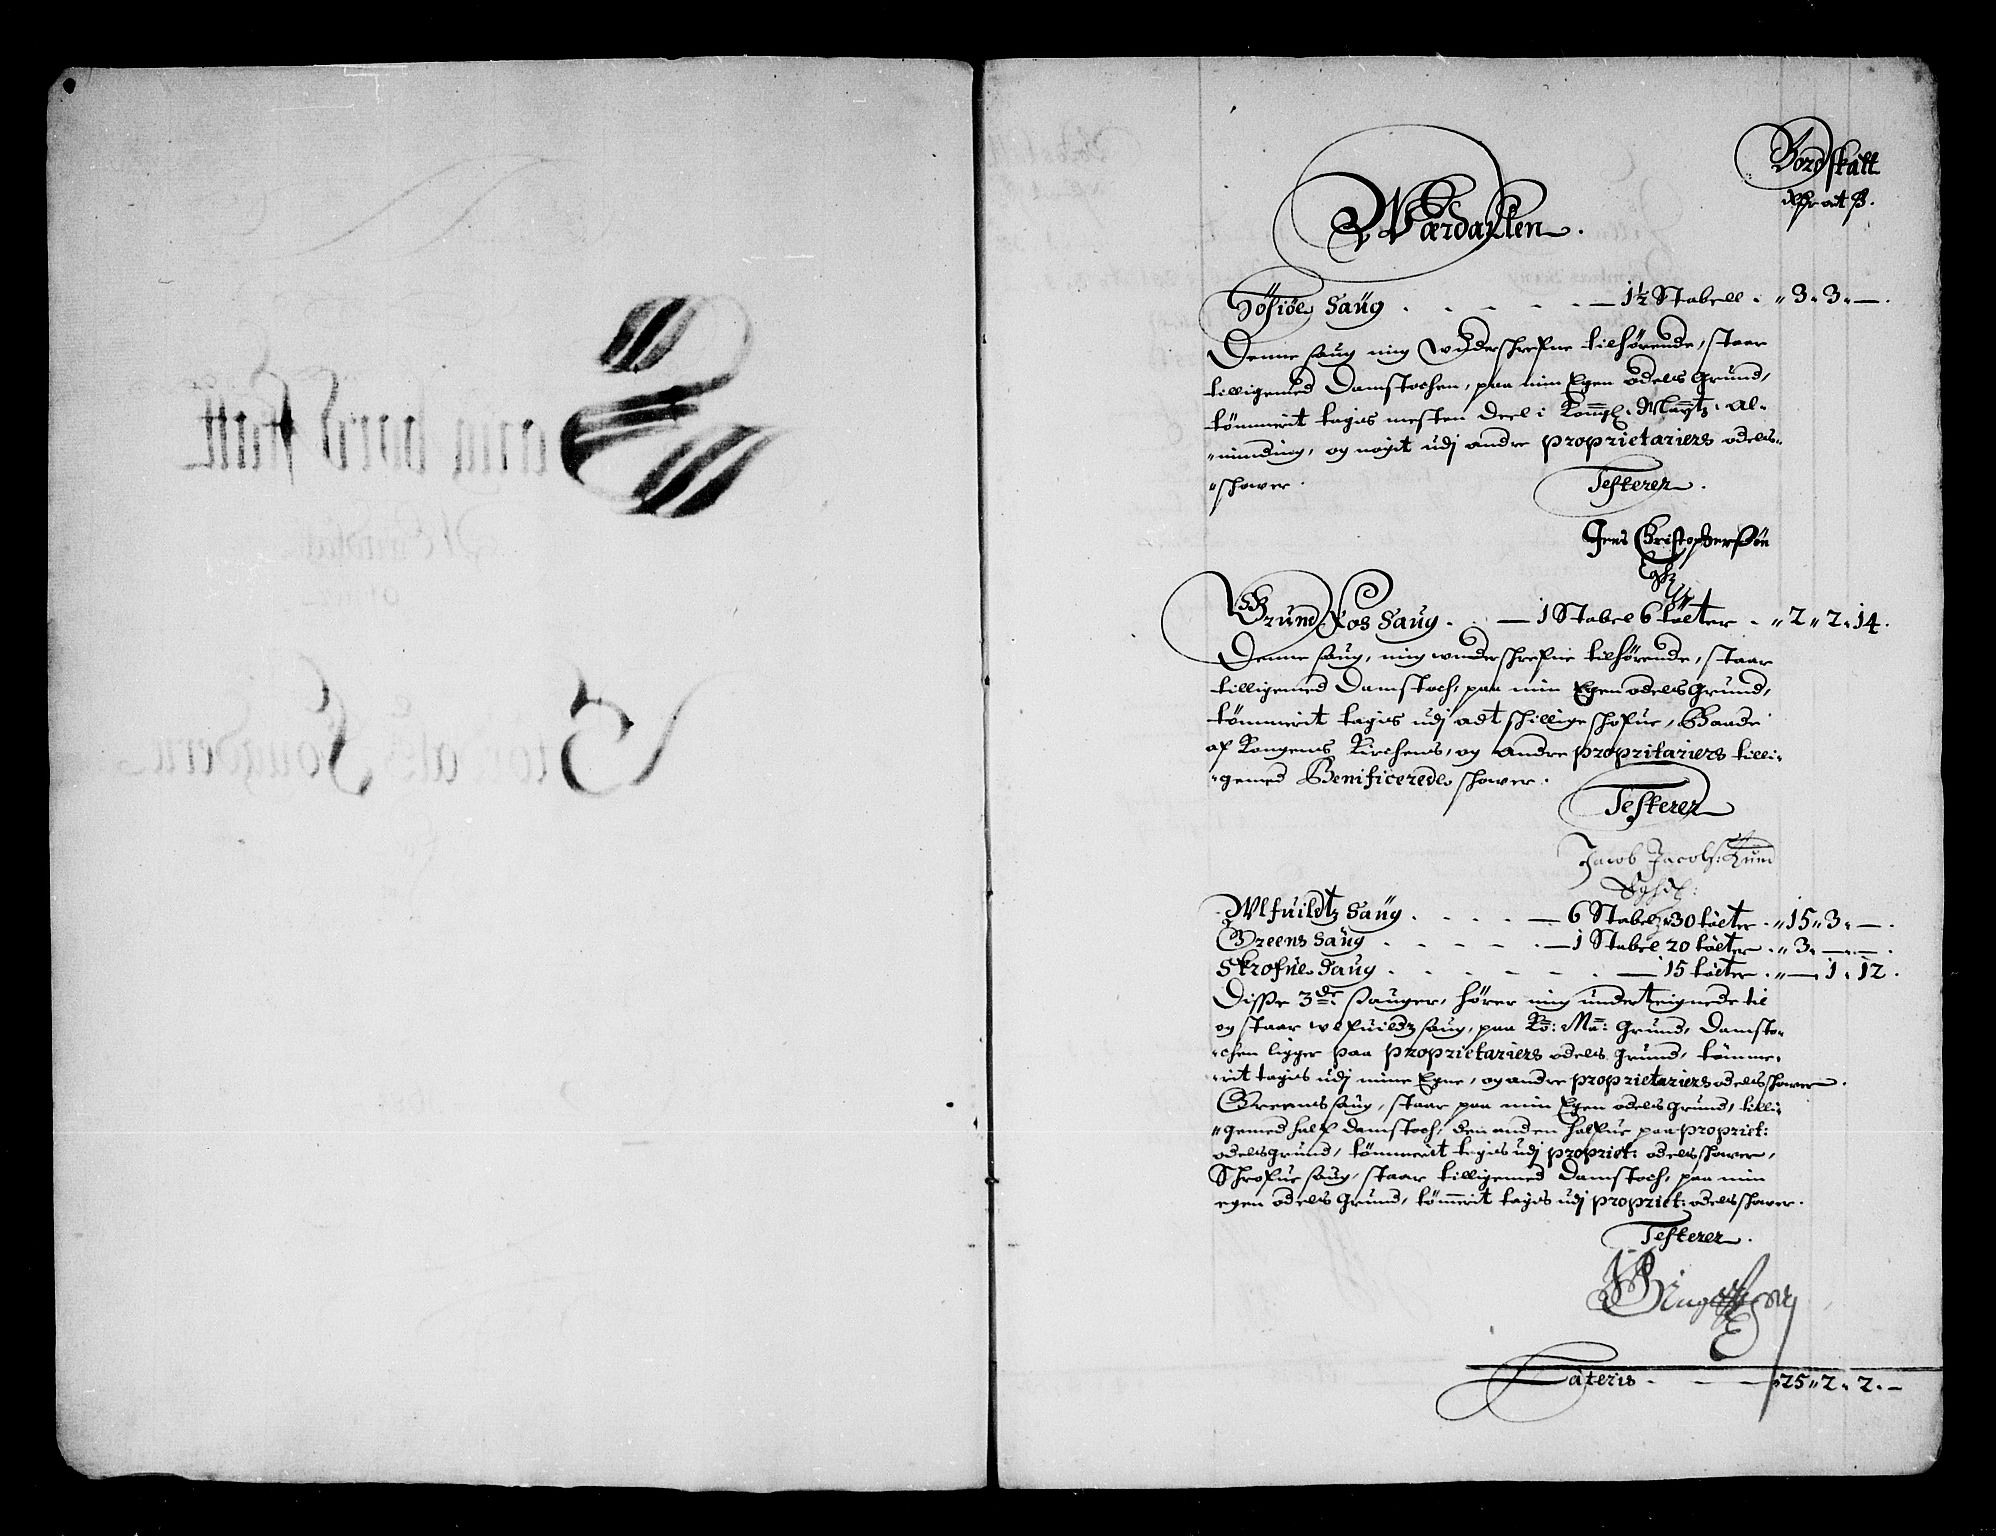 Bordskatt
Wærdahlen.
Höfiöle Saug . . . . . — 1½ Stabell . „ 3 „ 3 „ — .
Denne saug mig underschrefne tilhørende, staar
tilligemed Damstochen, paa min Egen odels Grund,
tömmerit tagis mesten deel i Kongl: Maytz: Al-
minding, og nogit udj andre proprietariers odels-
schower.
Testerer .
Jens Christophersön
Grundfos Saug . . — 1 Stabel 6 tölter . „ 2 „ 2 „ 14 .
Denne saug, mig underschrefne tilhørende, staar
tilligemed Damstoch, paa min Egen odels Grund,
tömmerit tagis udj adtschillige schofue, Baade
af Kongens Kirchens, og andre propritariers tilli-
gemed Benificerede schower .
Testerer
Jacob Jacobs: Lund
Wlfuildtz Saug . . . . — 6 Stabel 30 tölter . „ 15 „ 3 „ — .
Greens Saug . . . . . — 1 Stabel 20 tölter . „ 3 „ — „ — .
Skrofue Saug . . . . . . — 15 tölter . „ — 1 „ 12 .
Disse 3de: Sauger, hører mig underteignede til
og staar Wlfuildz saug, paa Ko: Ma: Grund, Damsto-
chen ligger paa proprietariers odels Grund, tömme-
rit tagis udj mine Egne, og andre proprietariers odels schower .
Greens saug, staar paa min Egen odels Grund, tilli-
gemed half damstoch, den anden halfue paa propriet:
odels grund, tömmerit tagis udj propriet: odels schower,
Schrofue saug, staar tilligemed Damstoch, paa min
egen odels Grund, tömmerit tagis udj propriet: odels schower.
Testerer .
Lateris . . . — 25 „ 2 „ 2 . —